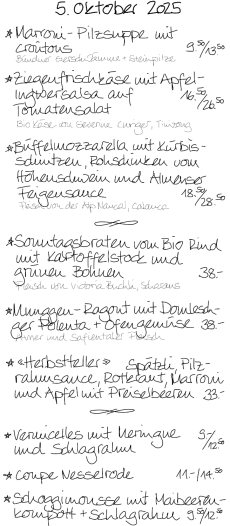 5. Oktober 2025
* Marroni-Pilzsuppe mit
croûtons 9.50/13.50
Bündner Gerstensuppe + Steinpilze
* Ziegenfrischkäse mit Apfel-
Ingwersalsa auf 16.50/26.50
Tomatensalat
Bio Käse von Severine Curiger,
* Büffelmozzarella mit Kürbis-
schnitzen, Rohschinken vom
Hohenschwein und Almenser
Feigensauce 18.50/28.50
von der Alp Nurdal,
* Sonntagsbraten vom Bio Rind
mit Kartoffelstock und
grünen Bohnen 38.-
Fleisch von Victoria Buchli, Scharans
* Munggen-Ragout mit Domlesch-
ger Polenta + Ofengemüse 38.-
Avner und Safientaler Fleisch
* «Herbstteller» Spätzli, Pilz-
rahmsauce, Rotkraut, Marroni
und Apfel mit Preiselbeeren 33.-
* Vermicelles mit Meringue 9.-/12.50
und Schlagrahm
* Coupe Nesselrode 11.-/14.50
* Schoggimousse mit Maibeeren-
kompott + Schlagrahm 9.50/12.50